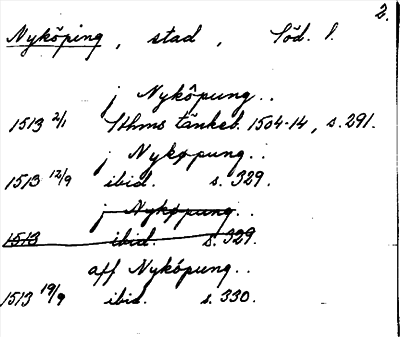 2.
Nyköping, stad, Söd. l.
j Nykôpung..
1513 2/1 Sthms tänkeb. 1504-14, s. 291.
j Nykøpung..
1513 12/9 ibid. s. 329.
j Nykøpung..
1513 ibid. s. 329.
aff Nykôpung..
1513 19/9 ibid. s. 330.